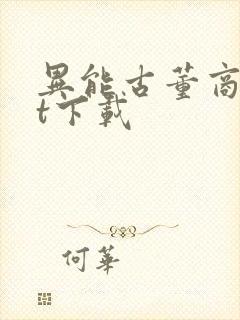 異能古董商
t下載
何華